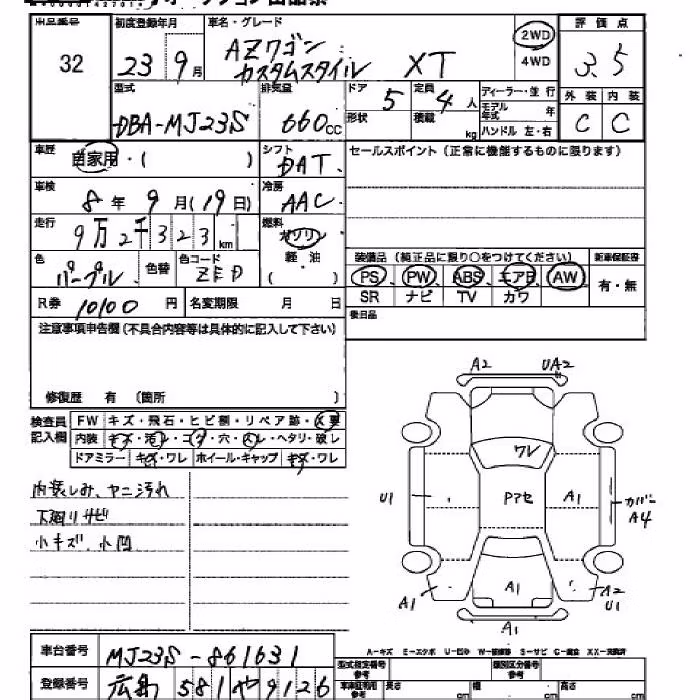 出品番号 初度登録年月 車名・グレード 評価点
32 23 9月 AZワゴン カスタムスタイル XT 2WD 4WD 3.5
型式 排気量 ドア 5 定員 4 人 ディーラー・並行 外装 内装
DBA-MJ23S 660cc 形状 積載 kg モデル年式 年 C C
ハンドル 左・右
車歴 自家用・( ) シフト DAT セールスポイント(正常に機能するものに限ります)
車検 8年 9月(19日) 冷房 AAC
走行 9万2千323km 燃料 ガソリン
軽・油
( )
色 パープル 色替 色コード ZED 装備品(純正品に限り○をつけてください) 新車保証書
PS PW ABS エアB AW 有・無
SR ナビ TV カワ
R券 10100円 名変期限 月 日 後日品
注意事項申告欄(不具合内容等は具体的に記入して下さい)
修復歴 有 (箇所 )
検査員記入欄 FW キズ・飛石・ヒビ割・リペア跡・X要
内装 キズ・汚レ・コゲ・穴・スレ・ヘタリ・破レ
ドアミラー キズ・ワレ ホイール・キャップ キズ・ワレ
内装しみ、ヤニ汚れ
下廻りサビ
小キズ、小凹
A2 UA2
ワレ
U1 Pアセ A1 カバー A4
A1 A1 A2 U1
A1
A-キズ E-エクボ U-凹み W-補修跡 S-サビ C-腐食 XX-交換済
車台番号 MJ23S-861631 型式指定番号 参考 類別区分番号 参考
登録番号 広島 581 や 9126 車車証利用 参考 長さ cm 幅 cm 高さ cm